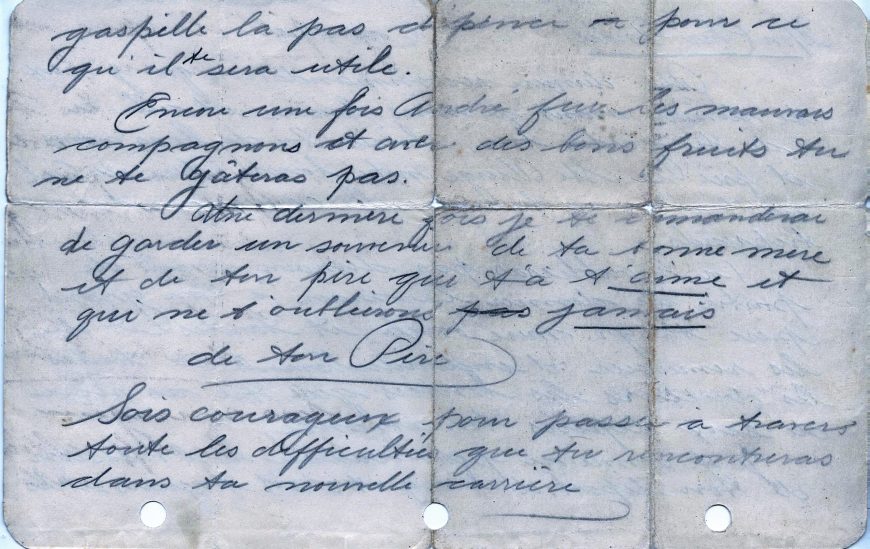 gaspille la pas dépence a pour ce
qu'il te sera utile.
Encore une fois André fuie les mauvais
compagnons et avec des bons fruits tu
ne te gâteras pas.
Une dernière fois je te demanderai
de garder un souvenir de ta bonne mère
et de ton père qui t'a t'aime et
qui ne t'oublierons pas jamais
de ton Père
Sois courageux pour passer à travers
toute les difficultées que tu rencontreras
dans ta nouvelle carrière